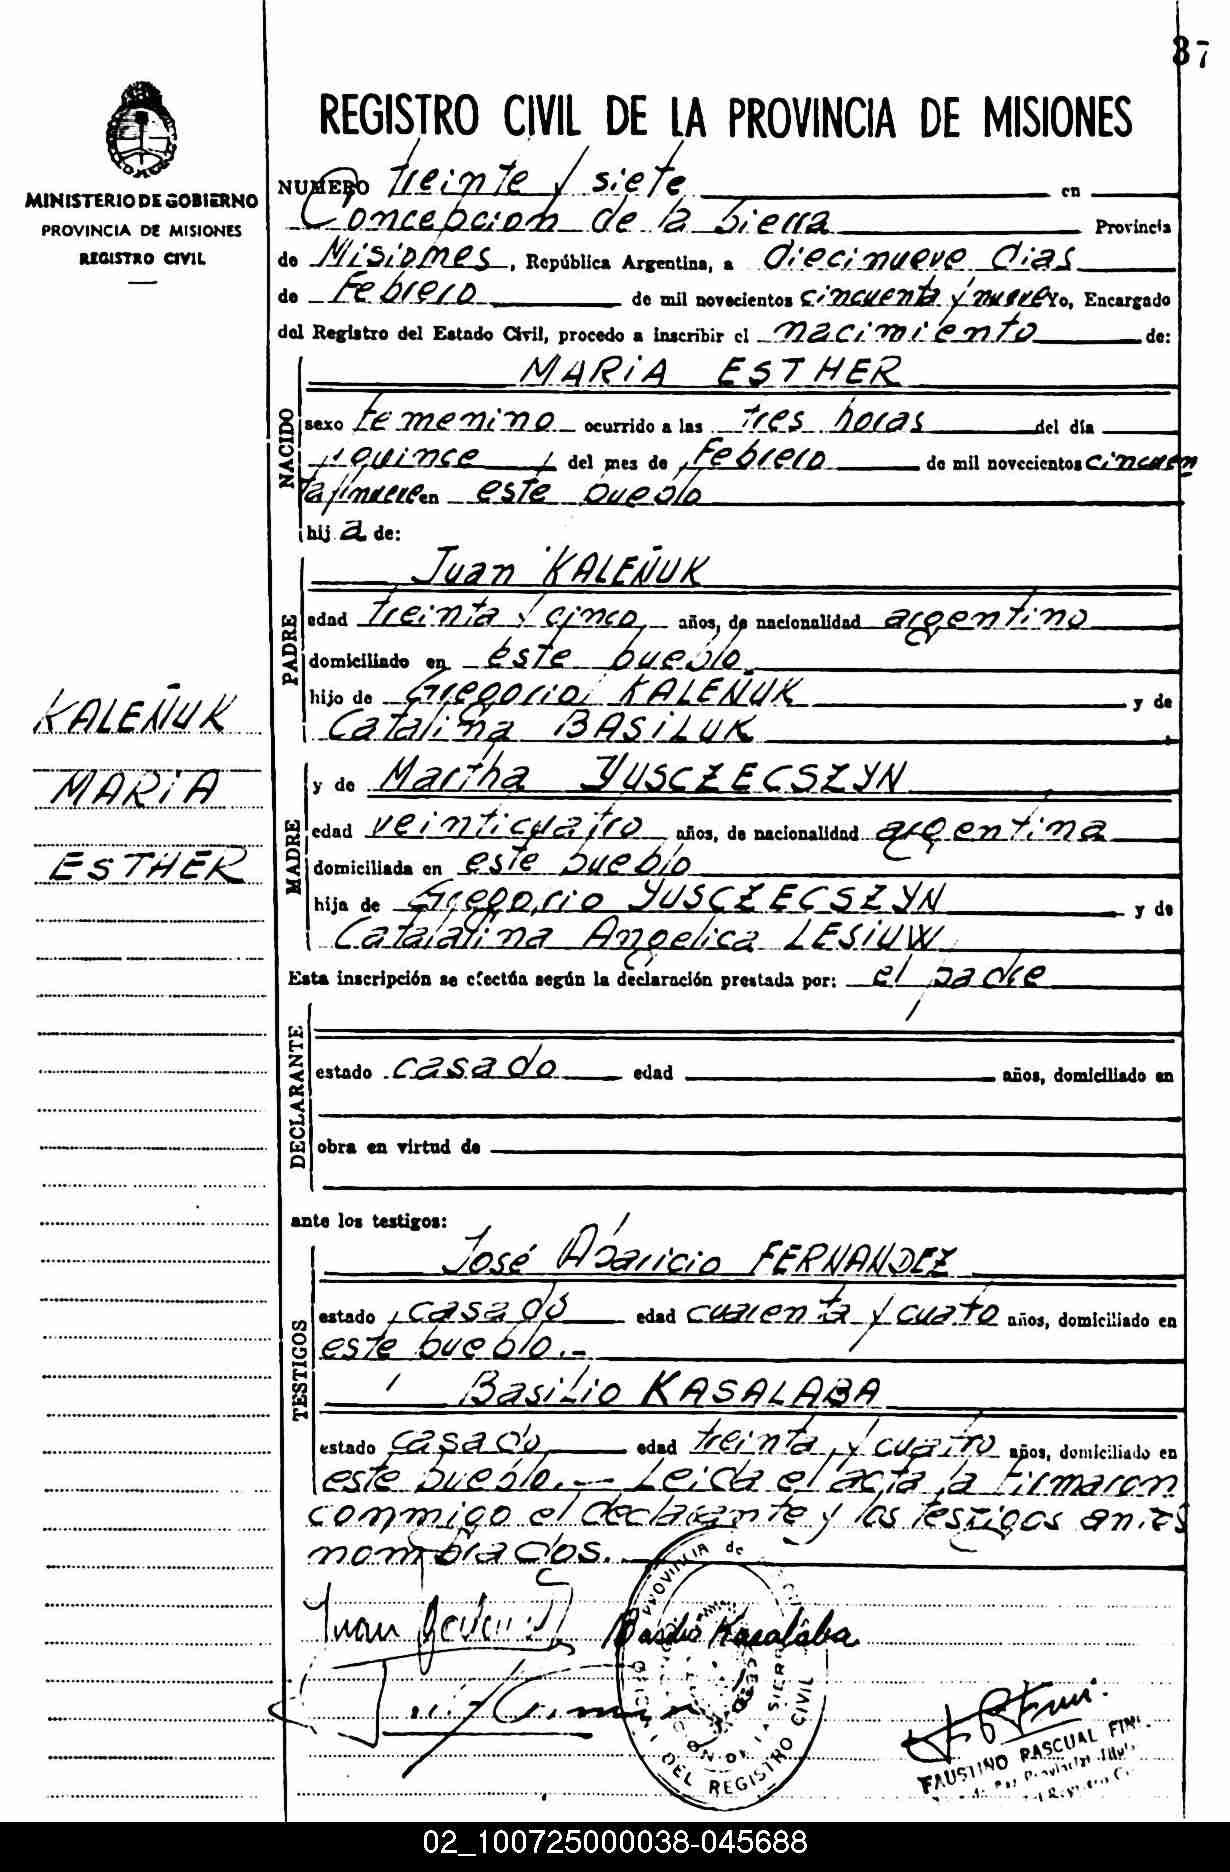 37
REGISTRO CIVIL DE LA PROVINCIA DE MISIONES
MINISTERIO DE GOBIERNO
PROVINCIA DE MISIONES
REGISTRO CIVIL
NUMERO treinte y siete en
Concepcion de la Sierra Provincia
de Misiones, República Argentina, a diecinueve dias
de Febrero de mil novecientos cincuenta y nueve Yo, Encargado
del Registro del Estado Civil, procedo a inscribir el nacimiento de:
NACIDO
MARIA ESTHER
sexo femenino ocurrido a las tres horas del día
quince del mes de Febrero de mil novecientos cincuen
ta y nueve en este pueblo
hij a de:
PADRE
Juan KALEÑUK
edad treinta y cinco años, de nacionalidad argentino
domiciliado en este pueblo
hijo de Gregorio KALEÑUK y de
Catalina BASILUK
KALEÑUK
MARIA
ESTHER
MADRE
y de Martha YUSCZECSZYN
edad veinticuatro años, de nacionalidad argentina
domiciliada en este pueblo
hija de Gregorio YUSCZECSZYN y de
Catalalina Angelica LESIUW
Esta inscripción se efectúa según la declaración prestada por: el padre
DECLARANTE
estado casado edad años, domiciliado en
obra en virtud de
ante los testigos:
TESTIGOS
José Aparicio FERNANDEZ
estado casado edad cuarenta y cuato años, domiciliado en
este pueblo.-
Basilio KASALABA
estado casado edad treinta y cuatro años, domiciliado en
este pueblo.- Leida el acta la firmaron
conmigo el declarante y los testigos antes
nombrados.
Juan
Basilio Kasalaba
PROVINCIA de
DEL REGISTRO CIVIL
DE LA SIERRA
FAUSTINO PASCUAL
02_100725000038-045688